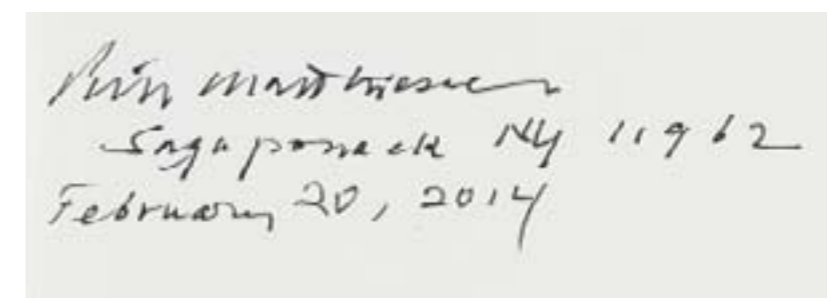 Peter Matthiessen
Sagaponack NY 11962
February 20, 2014